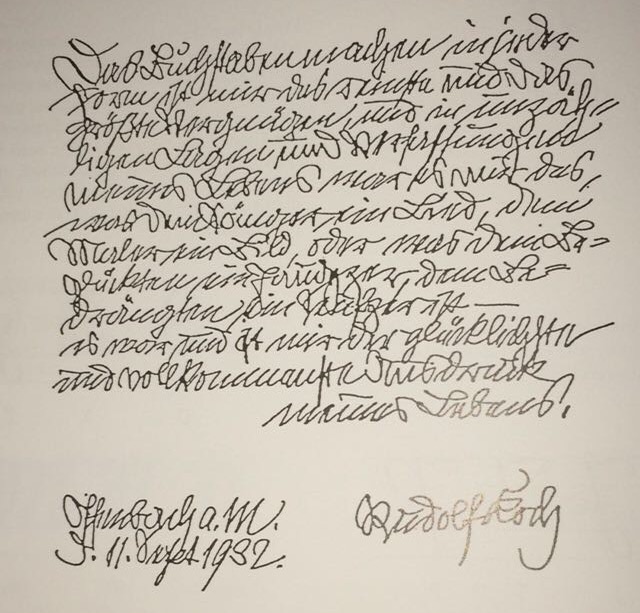 Das Buchstabenmachen in jeder
Form ist mir das reinste und das
größte Vergnügen, und in unzäh=
ligen Lagen und Verfassungen
meines Lebens war es mir das,
was dem Sänger ein Lied, dem
Maler ein Bild, oder was dem Be=
glückten ein Jauchzer, dem Be=
drängten ein Seufzer ist —
es war und ist mir der glücklichste
und vollkommenste Ausdruck
meines Lebens.
Offenbach a. M.
11. Sept 1932.
Rudolf Koch